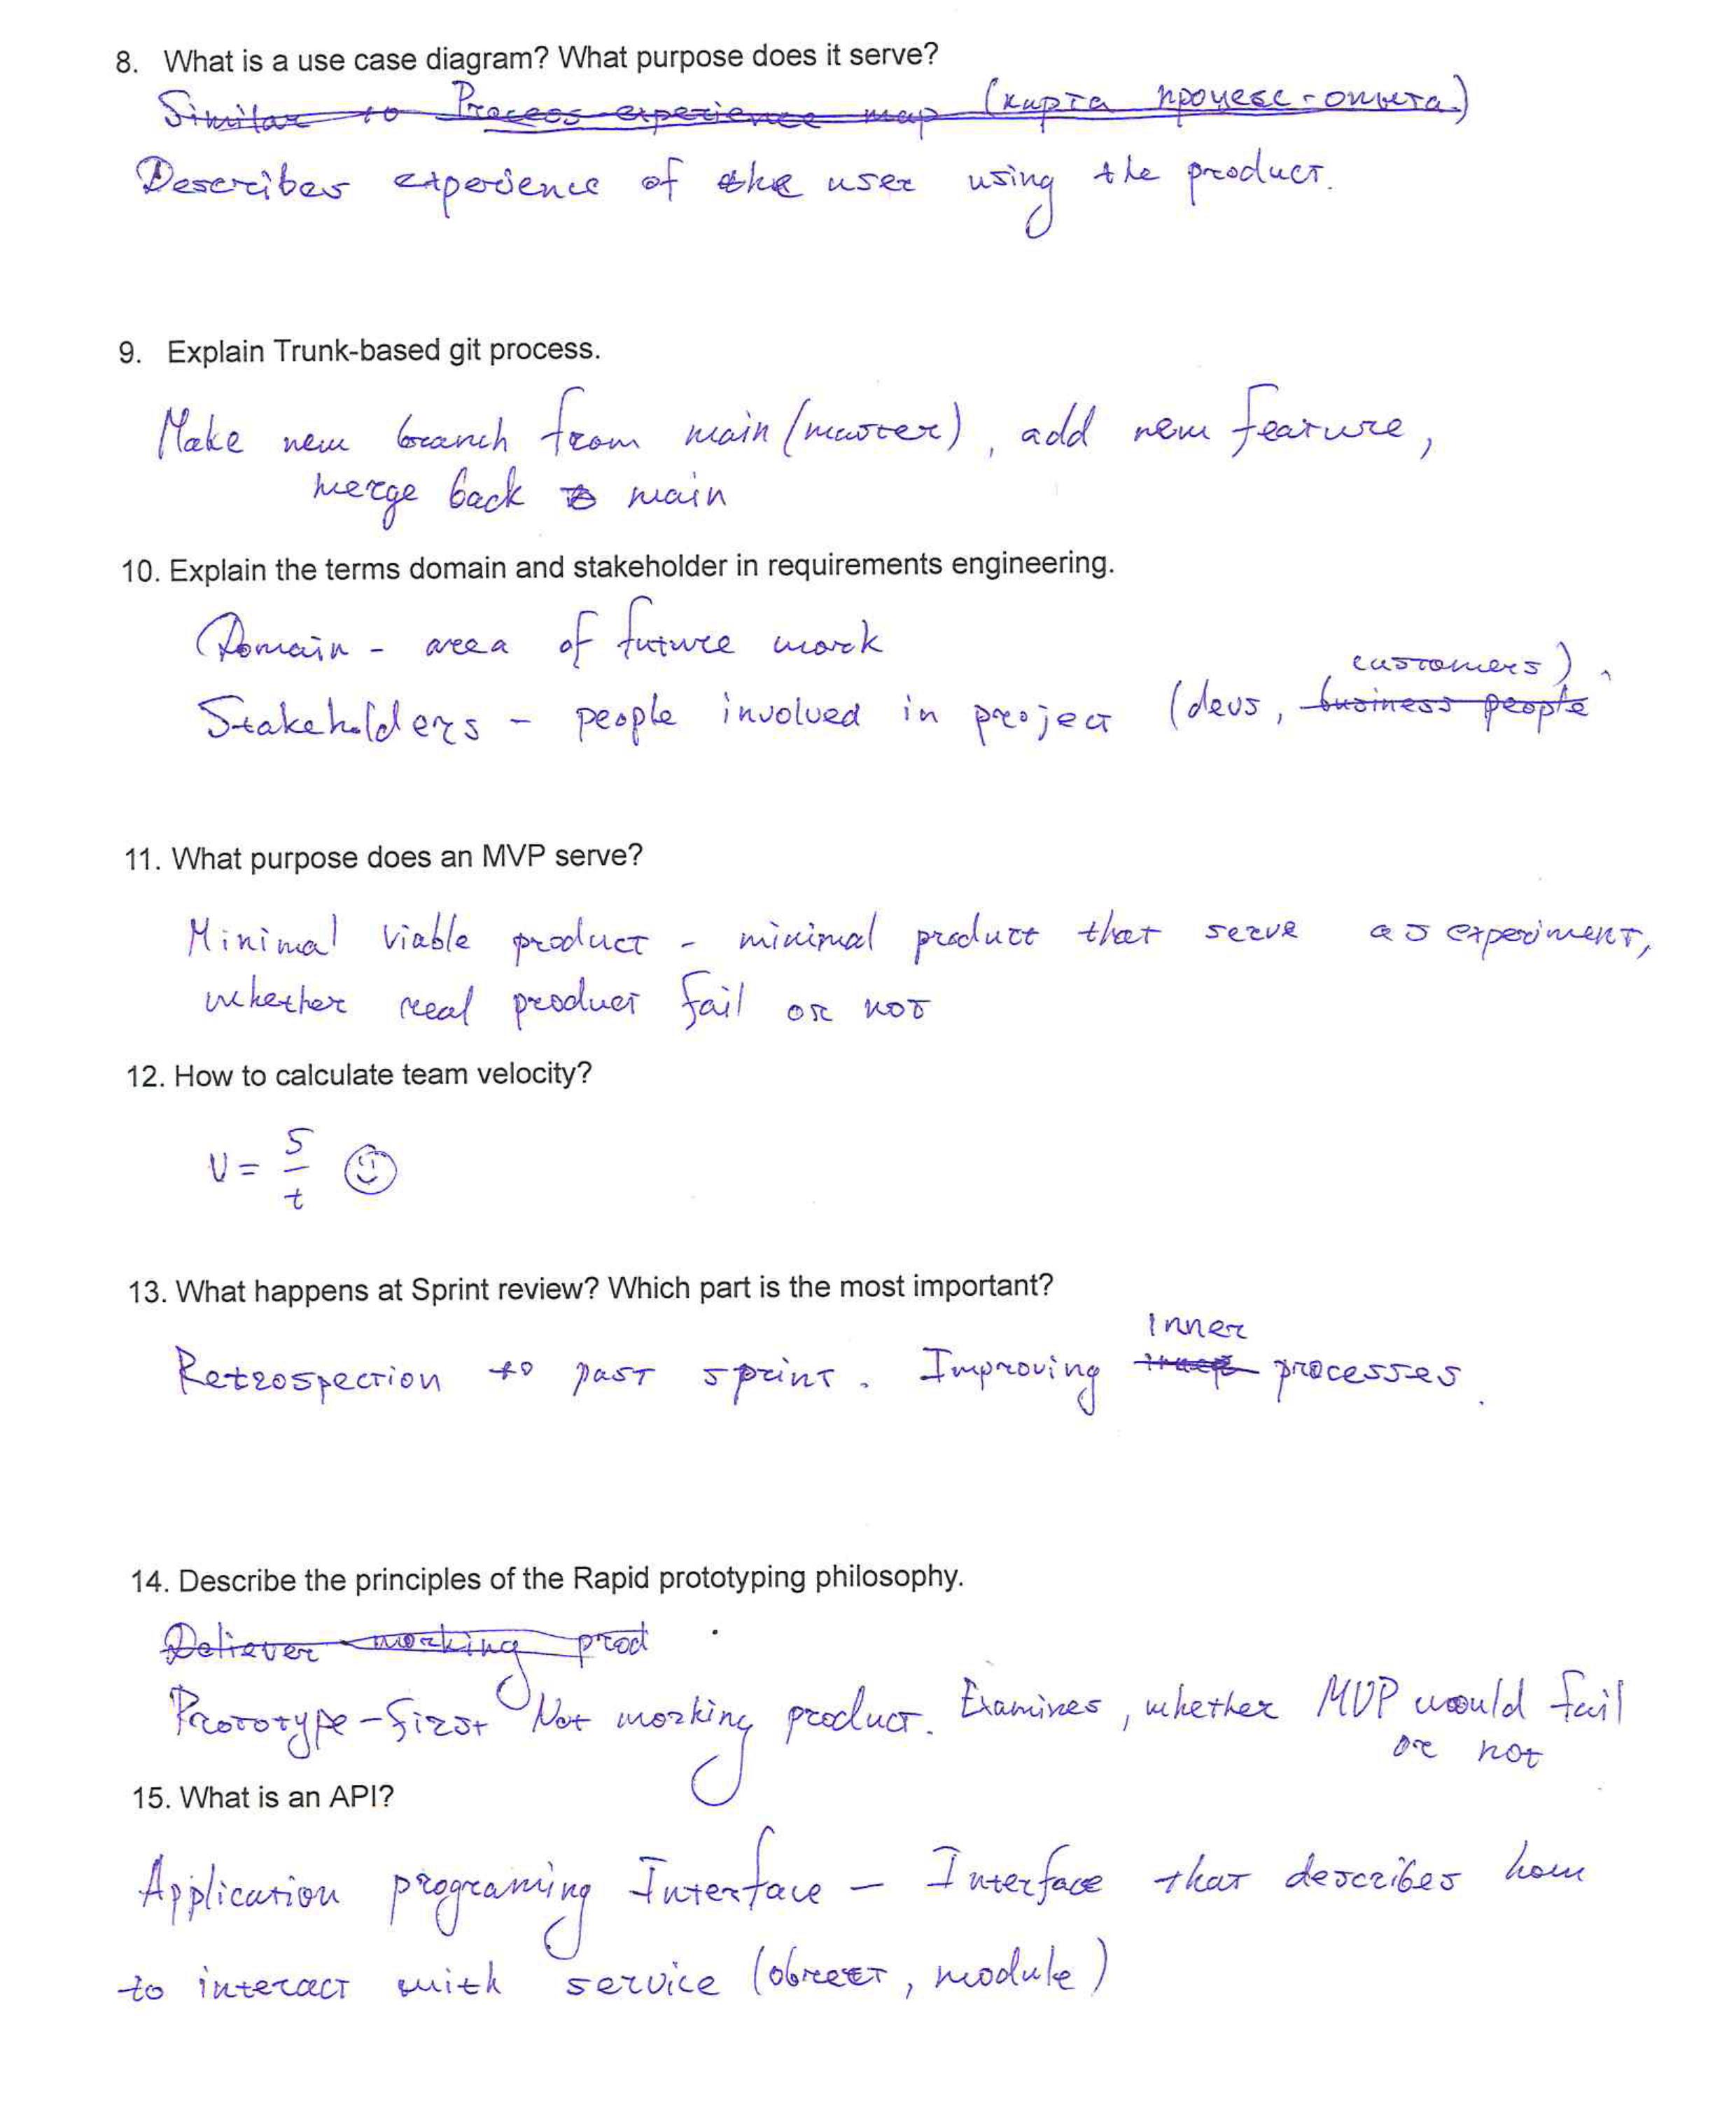 8. What is a use case diagram? What purpose does it serve?
Similar to Process experience map (карта процесс-опыта)
Describes experience of the user using the product.
9. Explain Trunk-based git process.
Make new branch from main (master), add new feature,
merge back to main
10. Explain the terms domain and stakeholder in requirements engineering.
Domain - area of future work
customers).
Stakeholders - people involved in project (devs, business people
11. What purpose does an MVP serve?
Minimal viable product - minimal product that serve as experiment,
whether real product fail or not
12. How to calculate team velocity?
V = S
t
13. What happens at Sprint review? Which part is the most important?
Inner
Retrospection to past sprint. Improving processes.
14. Describe the principles of the Rapid prototyping philosophy.
Deliever working prod
Prototype-first Not working product. Examines, whether MVP would fail
or not
15. What is an API?
Application programing Interface - Interface that describes how
to interact with service (object, module)